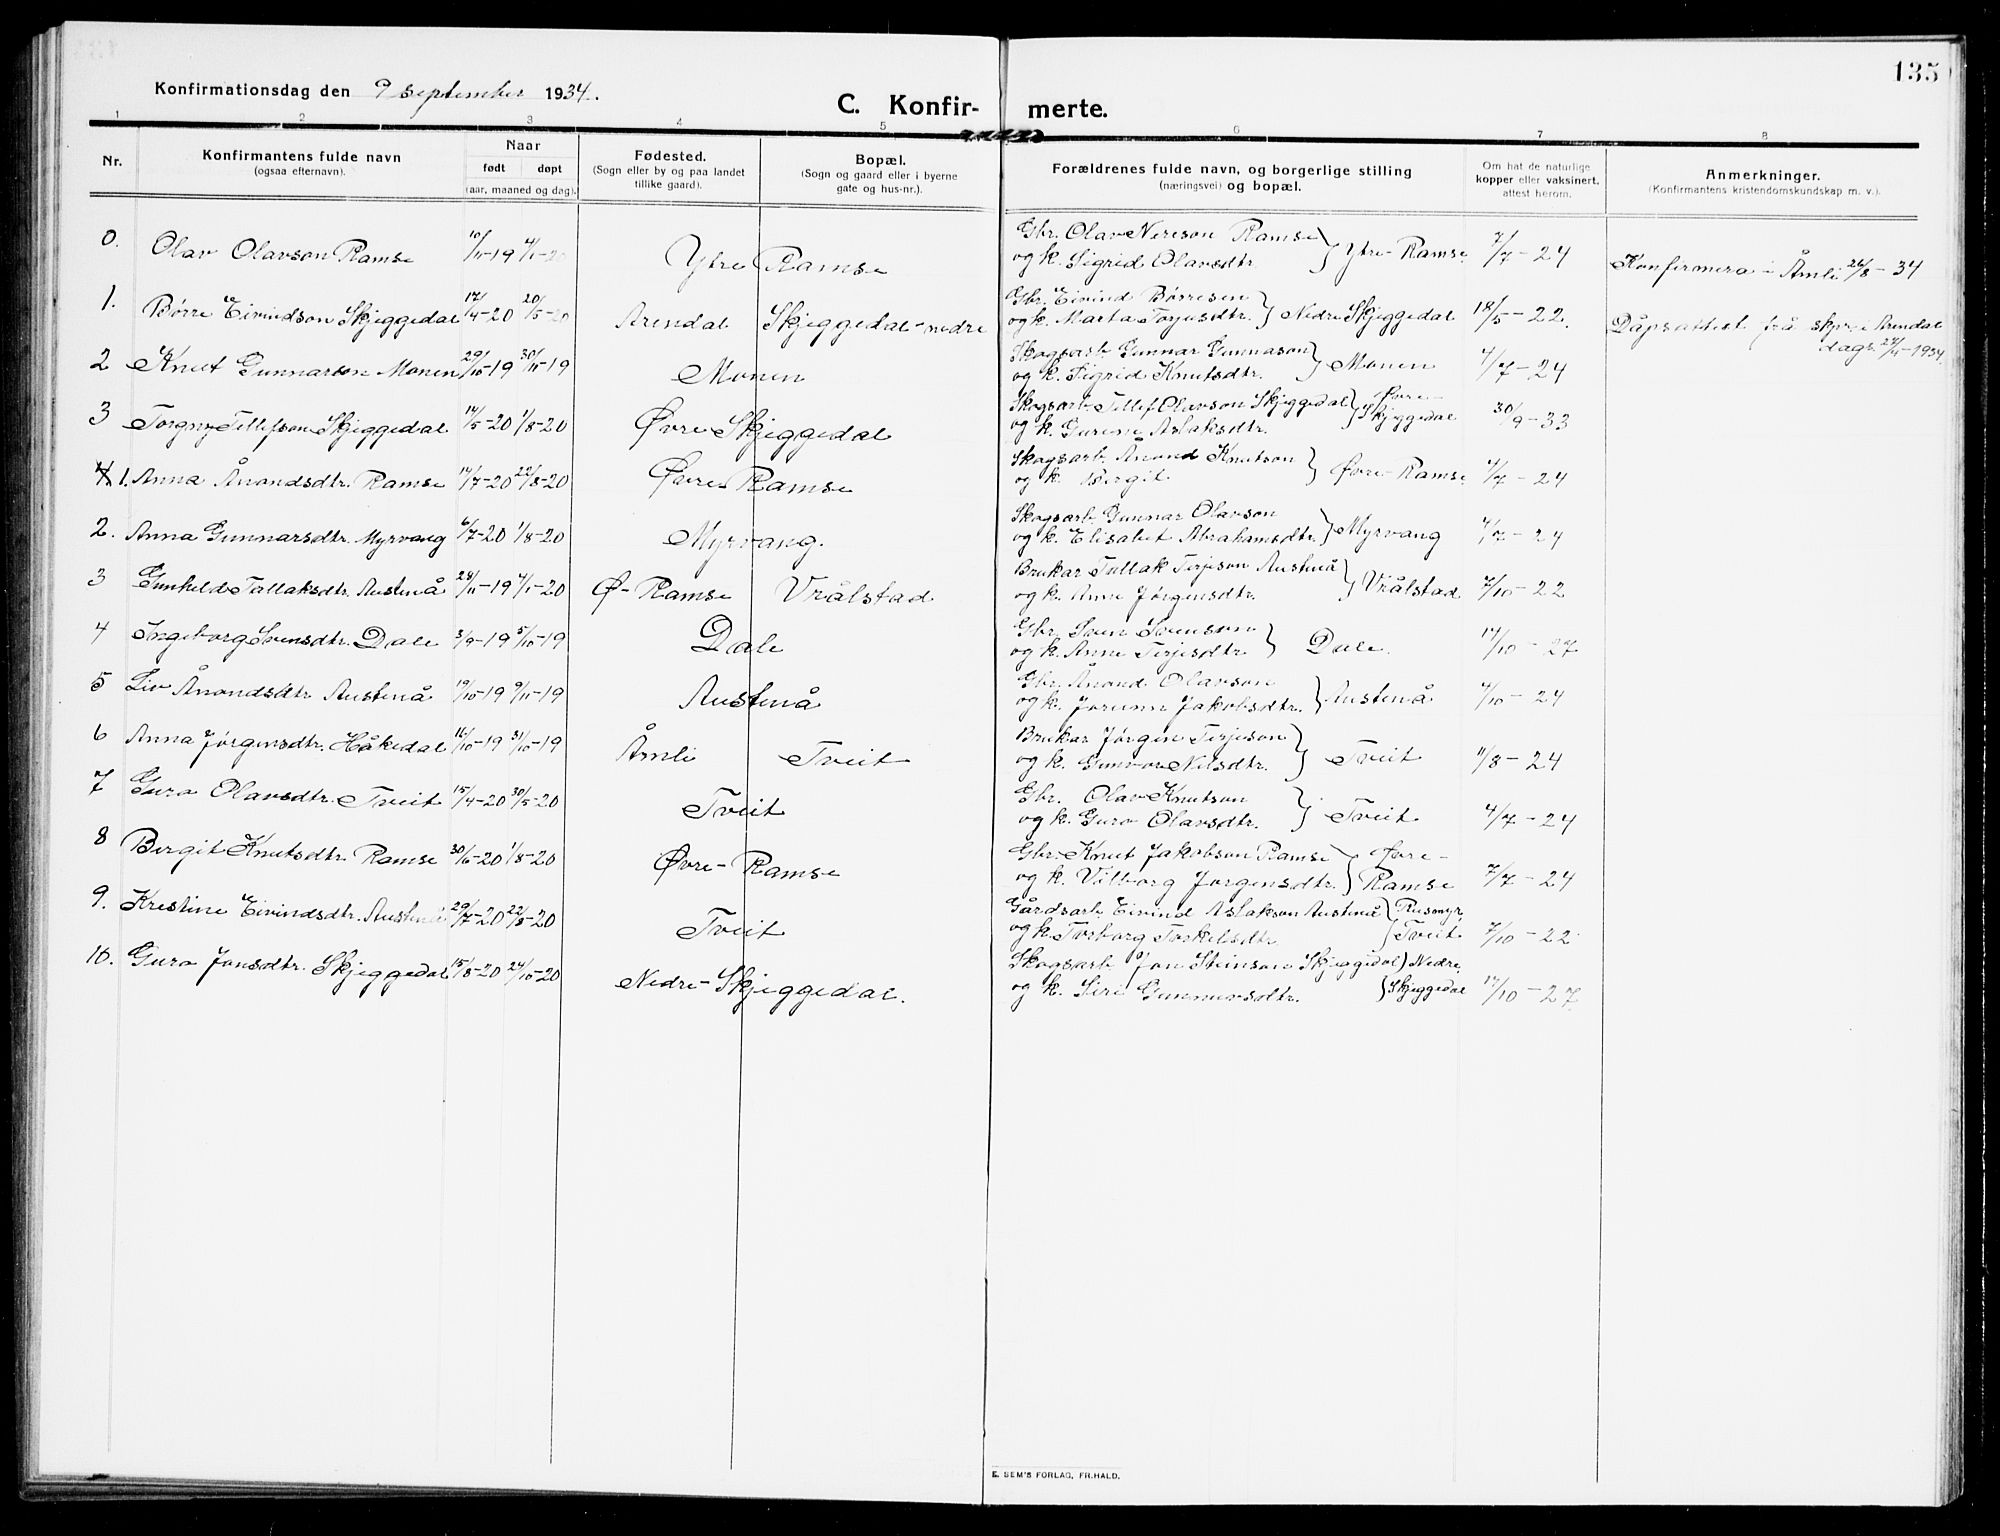 135
Konfirmationsdag den 9 september 1934.
C. Konfir- merte.
1 2 3 4 5 6 7 8
Nr. Konfirmantens fulde navn (ogsaa efternavn). Naar født døpt (aar, maaned og dag). Fødested. (Sogn eller by og paa landet tillike gaard). Bopæl. (Sogn og gaard eller i byerne gate og hus-nr.). Forældrenes fulde navn, og borgerlige stilling (næringsvei) og bopæl. Om hat de naturlige kopper eller vaksinert, attest herom. Anmerkninger. (Konfirmantens kristendomskundskap m. v.).
0. Olav Olavson Ramse 10/11-19 4/1-20 Ytre Ramse Gbr. Olav Nereson Ramse } Ytre-Ramse 7/7-24 Konfirmera i Åmli 26/8-34
og k. Sigrid Olavsdtr.
1. Børre Eivindson Skjeggedal 17/4-20 20/5-20 Arendal Skjeggedal-nedre Gbr. Eivind Børresen } Nedre Skjeggedal 18/5-22. Dåpsattest frå skpr. i Arendal
og k. Marta Torjusdtr. dags. 24/4-1934.
2 Knut Gunnarson Monen 29/10-19 30/11-19 Monen Skogsarb. Gunnar Gunnason } Monen 4/7-24
og k. Sigrid Knutsdtr.
3 Torgny Tellefson Skjeggedal 14/5-20 1/8-20 Øvre Skjeggedal Skogsarb. Tellef Olavson Skjeggedal } Øvre- Skjeggedal 30/9-33
og k. Gurine Aslaksdtr.
4 1. Anna Ånondsdtr. Ramse 14/7-20 22/8-20 Øvre Ramse Skogsarb. Ånond Knutson } Øvre-Ramse 4/7-24
og k. Bergit
2. Anna Gunnarsdtr. Myrvang 6/7-20 1/8-20 Myrvang. Skogsarb. Gunnar Olavson } Myrvang 4/7-24
og k. Elisabet Abrahamsdtr.
3 Gunhild Tallaksdtr. Austenå 28/11-19 4/1-20 Ø-Ramse Vrålstad Brukar Tallak Terjeson Austenå } Vrålstad 7/10-22
og k. Anne Jørgensdtr.
4 Ingeborg Svensdtr. Dale 3/9-19 5/10-19 Dale Gbr. Sven Svenson } Dale. 17/10-27
og k. Anne Terjesdtr
5 Liv Ånondsdtr Austenå 19/10-19 9/11-19 Austenå Gbr. Ånond Olavson } Austenå 4/10-24
og k. Jorunn Jakobsdtr.
6 Anna Jørgensdtr. Håkedal 16/10-19 31/10-19 Åmli Tveit Brukar Jørgen Terjeson } Tveit 11/8-24
og k. Gunvor Nilsdtr.
7 Guro Olavsdtr. Tveit 15/4-20 30/5-20 Tveit Gbr. Olav Knutson } Tveit 4/7-24
og k. Guro Olavsdtr.
8 Bergit Knutsdtr. Ramse 30/6-20 1/8-20 Øvre-Ramse Gbr. Knut Jakobson Ramse } Øvre- Ramse 7/7-24
og k. Vilborg Jørgensdtr.
9. Krestine Eivindsdtr. Austenå 29/7-20 22/8-20 Tveit Gårdsarb. Eivind Aslakson Austenå } Rusmyr, Tveit 7/10-22
og k. Torborg Torkelsdtr.
10. Guro Jonsdtr. Skjeggedal 15/8-20 24/10-20 Nedre-Skjeggedal. Skogsarb. Jon Steinson Skjeggedal } Nedre Skjeggedal 17/10-27
og k. Siri Gunnarsdtr.
E. SEM'S FORLAG, FR.HALD.